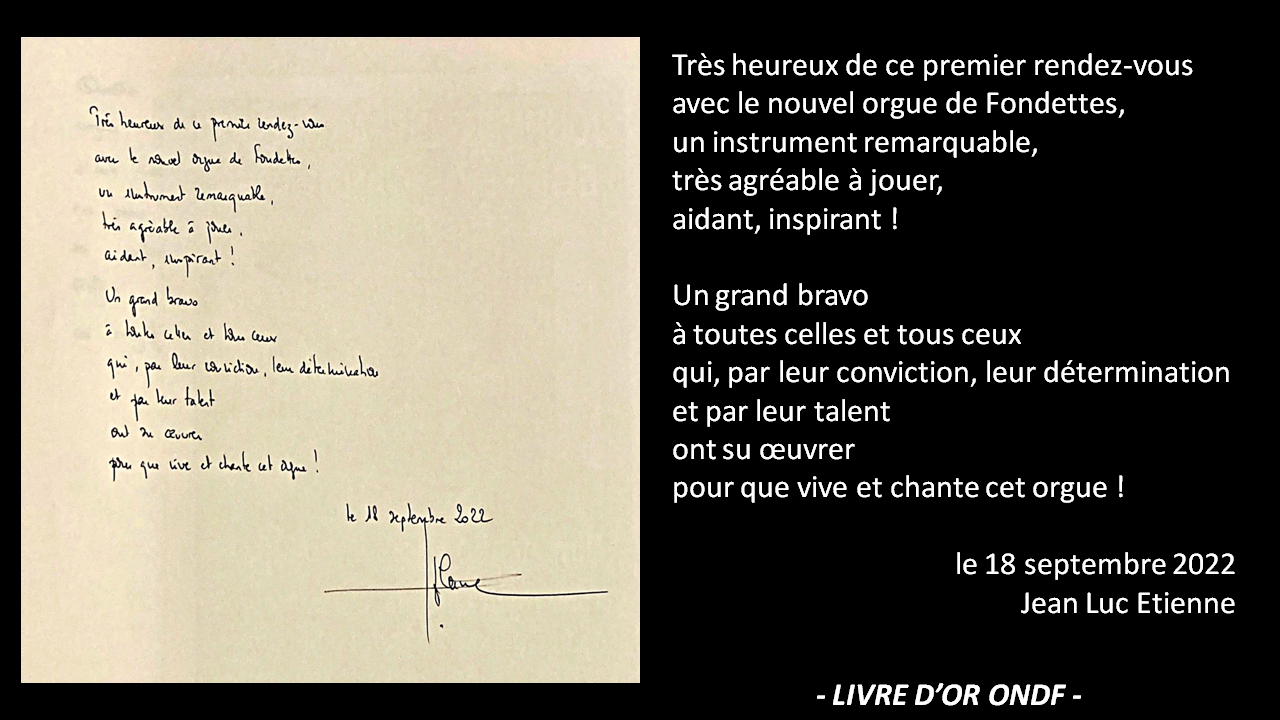 Très heureux de ce premier rendez-vous
avec le nouvel orgue de Fondettes,
un instrument remarquable,
très agréable à jouer,
aidant, inspirant !
Un grand bravo
à toutes celles et tous ceux
qui, par leur conviction, leur détermination
et par leur talent
ont su œuvrer
pour que vive et chante cet orgue !
le 18 septembre 2022
Très heureux de ce premier rendez-vous
avec le nouvel orgue de Fondettes,
un instrument remarquable,
très agréable à jouer,
aidant, inspirant !
Un grand bravo
à toutes celles et tous ceux
qui, par leur conviction, leur détermination
et par leur talent
ont su œuvrer
pour que vive et chante cet orgue !
le 18 septembre 2022
Jean Luc Etienne
- LIVRE D’OR ONDF -